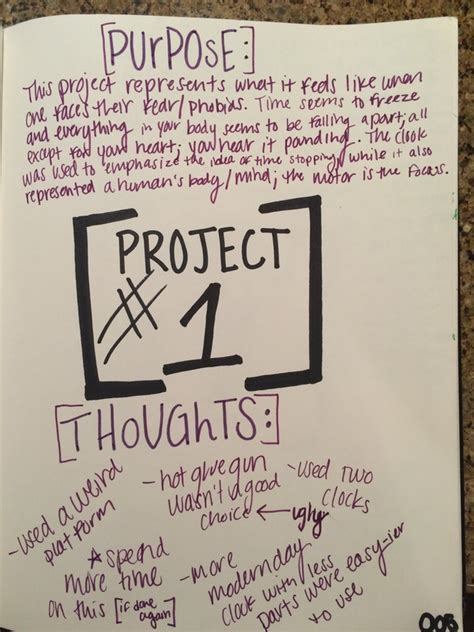 [PURPOSE:]
This project represents what it feels like when
one faces their fear/phobias. Time seems to freeze
and everything in your body seems to be falling apart; all
except for your heart; you hear it pounding. The clock
was used to emphasize the idea of time stopping while it also
represented a human's body/mind; the motor is the focus.
[PROJECT
#1]
[THOUGHTS:]
-used a weird
platform
-hot glue gun
wasn't a good
choice ← ughy
-used two
clocks
☆spend
more time
on this [if done
again]
-more
modernday
clock with less
parts were easy-ier
to use
005